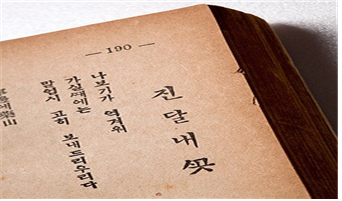 — 190 —
진달내ᄭᅩᆺ
나보기가 역겨워
가실ᄯᅢ에는
말업시 고히 보내드리우리다